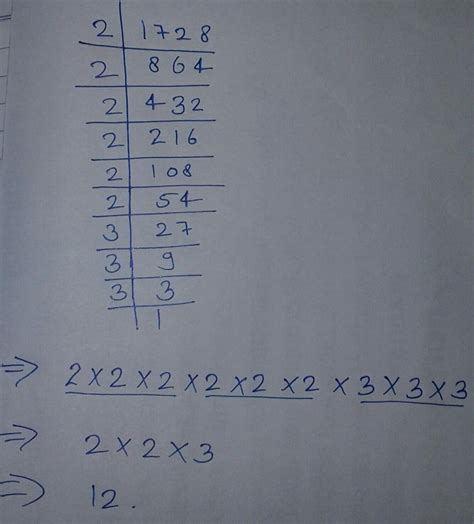 2 | 1728
2 | 864
2 | 432
2 | 216
2 | 108
2 | 54
3 | 27
3 | 9
3 | 3
| 1
⇒ 2×2×2×2×2×2×3×3×3
⇒ 2×2×3
⇒ 12.